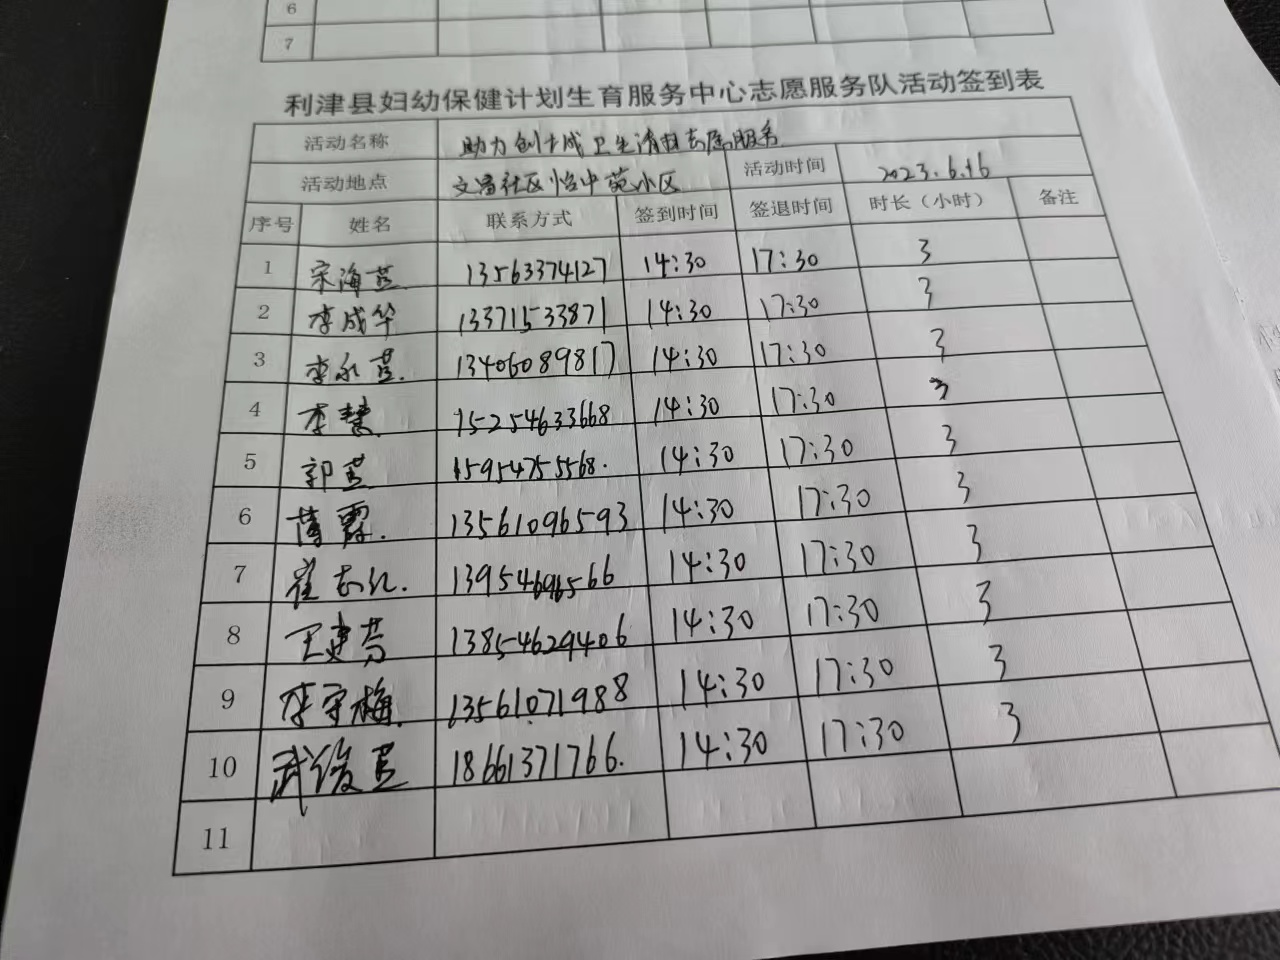 6
7
利津县妇幼保健计划生育服务中心志愿服务队活动签到表
活动名称 助力创城卫生清扫志愿服务
活动地点 文昌社区怡中苑小区 活动时间 2023.6.16
序号 姓名 联系方式 签到时间 签退时间 时长（小时） 备注
1 宋海燕 13563374127 14:30 17:30 3
2 李成华 13371533871 14:30 17:30 3
3 李永燕. 13406089817 14:30 17:30 3
4 李慧 15254633668 14:30 17:30 3
5 郭燕 15954755568. 14:30 17:30 3
6 薄霞. 13561096593 14:30 17:30 3
7 崔志红. 13954696566 14:30 17:30 3
8 王建芬 13854629406 14:30 17:30 3
9 李守梅. 13561071988 14:30 17:30 3
10 武俊 18661371766. 14:30 17:30 3
11